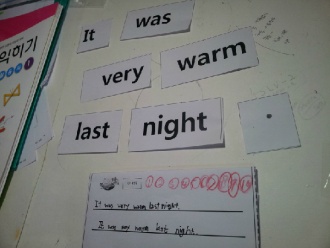 It was
very warm
last night .
It was very warm last night.
It was very warm last night.